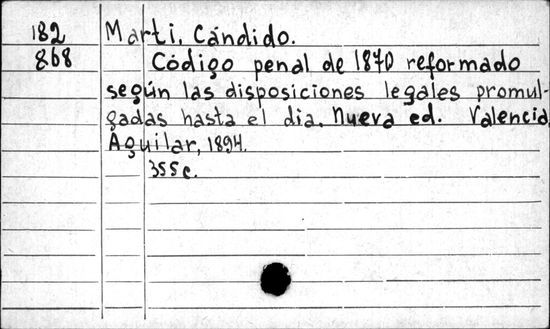 182 Marti, Cándido.
868 Código penal de 1870 reformado
según las disposiciones legales promul-
gadas hasta el dia. Nueva ed. Valencia,
Aguilar, 1894.
355 c.